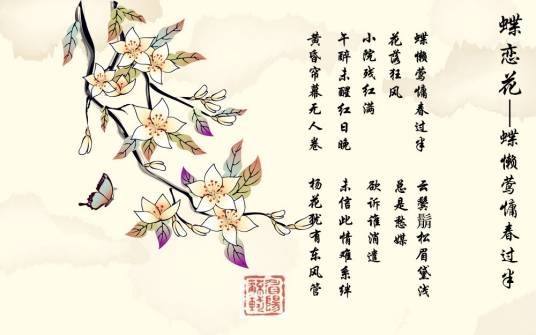 蝶恋花—蝶懒莺慵春过半
蝶懒莺慵春过半
花落狂风
小院残红满
午醉未醒红日晚
黄昏帘幕无人卷
云鬓鬅松眉黛浅
总是愁媒
欲诉谁消遣
未信此情难系绊
杨花犹有东风管